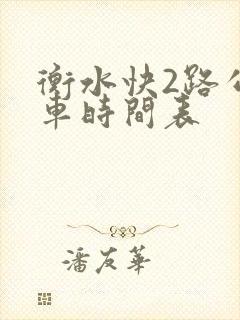 衡水快2路公
車時間表
潘友華